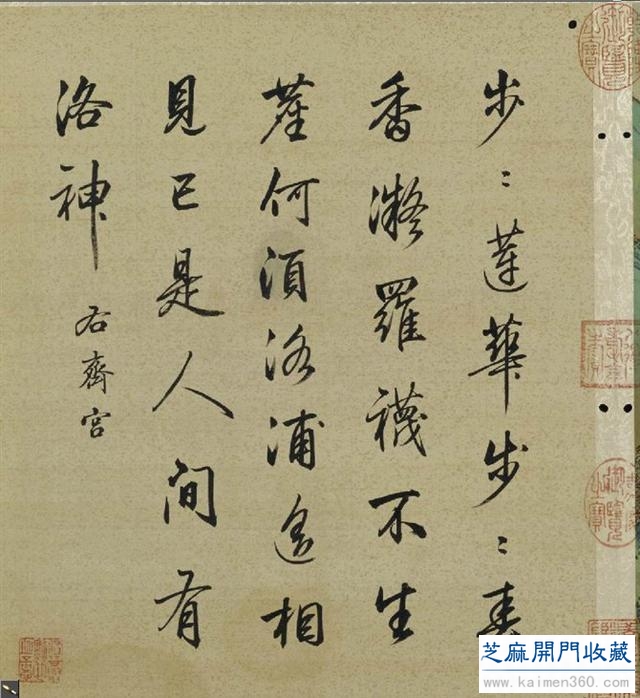 步〻蓮華步〻春
香凝羅襪不生
塵何須洛浦遙相
見已是人間有
洛神
右齊宮
芝麻開門收藏
www.kaimen360.com